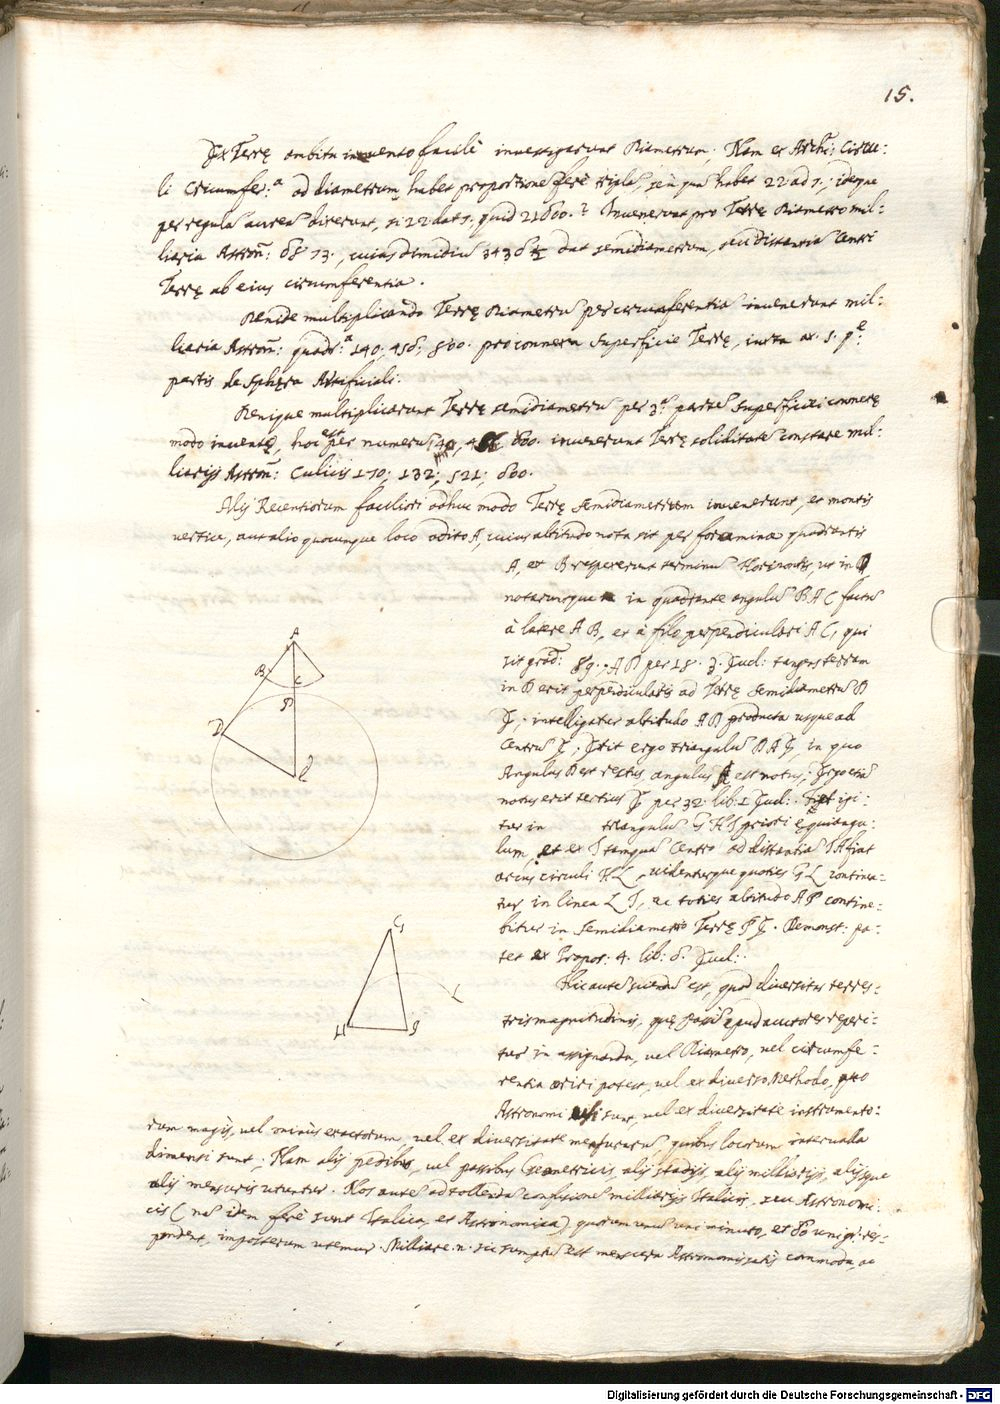 15.
Ex Terrę ambitu invento facilè investigarunt Diametrum; Nam ex Arch: Circu:
li circumfer:a ad diametrum habet proportione ferè tripla, seu qua habet 22 ad 7.; ideoque
per regula aurea dixerunt, si 22 dat 7. quid 21600.? Invenerunt pro Terrę Diametro mil:
liaria Astron: 6873., cuius dimidiu 3436 ½ dat semidiametrum, seu distantia Centri
Terrę ab eius circumferentia.
Deinde multiplicando Terrę Diametru per circumferentia invenerunt mil:
liaria Astron: quadr:a 140; 456; 800. pro connexa superficie Terrę, iuxta 5. pe:
partis de Sphęra Artificiali.
Denique multiplicarunt Terrę semidiametru per 3a parte superficiei connexę
modo inventę, hoc est per numeru 600. invenerunt Terrę soliditate constare mil:
liarijs Astron: Cubicis 170; 132; 521; 600.
Alij Recentiorum faciliori adhuc modo Terrę semidiametrum invenerunt, ex montis
vertice, aut alio quocunque loco edito A, cuius altitudo nota sit per foramina quadrantis
A, et B respexerunt terminu Horizontis, ut in D,
notaruntque in quadrante angulu BAC factu
à latere AB, et à filo perpendiculari AC, qui
sit grad: 89.; AD per 18. 3. Eucl: tangens terram
in D erit perpendicularis ad Terrę semidiametru D
E; intelligatur altitudo AP producta usque ad
Centru E; Erit ergo triangulu DAE, in quo
Angulus D est rectus, angulus A est notus; Ergo etia
notus erit tertius E per 32. lib: 1 Eucl: Fiet igi:
tur in triangulu GHI priori ęquiangu:
lum, et ex I tamqua Centro ad distantia IH fiat
arcus circuli HL, videnturque quoties GL contine:
tur in linea LI, ac toties altitudo AP contine:
bitur in Semidiametro Terrę PE. Demonst: pa:
tet ex Propos: 4. lib: 6. Eucl:
Hic aute sciendu est, quod diversitas terres:
tris magnitudinis, quę passi apud auctores reperi:
tur in assignanda, vel Diametro, vel circumfe:
rentia oriri potest, vel ex diverso Methodo, quo
Astronomi usi sunt, vel ex diversitate instrumento:
rum magis, vel minùs exactorum, vel ex diversitate mensuraru, quibus locorum intervalla
dimensi sunt; Nam alij pedibus, vel passibus Geometricis, alij stadijs, alij milliarijs, alijsque
alij mensuris utuntur. Nos aute ad tollenda confusione milliarijs Italicis, seu Astronomi:
cis (na idem ferè sunt Italica, et Astronomica) quorum unu uni minuto, et 60 uni gr: res:
pondent, imposterum utemur. Milliare .n. sic sumptu est mensura Astronomis satis commoda, ac
A
B
C
P
D
E
G
L
H
I
Digitalisierung gefördert durch die Deutsche Forschungsgemeinschaft - DFG